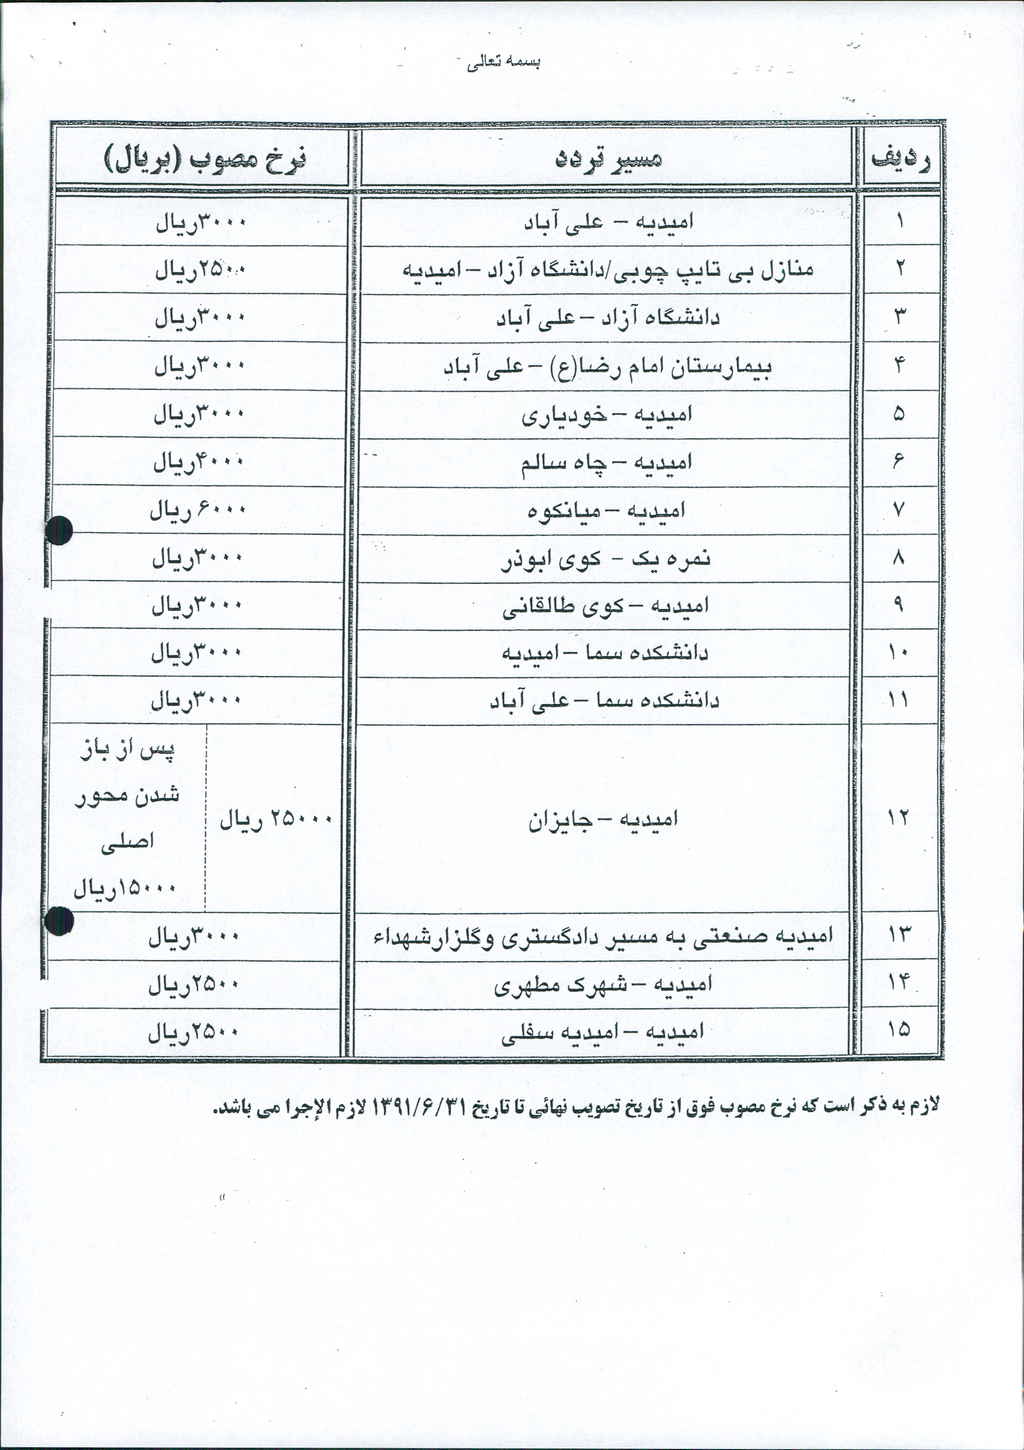 بسمه تعالی
ردیف مسیر تردد نرخ مصوب (بریال)
۱ امیدیه – علی آباد ۳۰۰۰ریال
۲ منازل بی تایپ چوبی/دانشگاه آزاد –امیدیه ۲۵۰۰ریال
۳ دانشگاه آزاد –علی آباد ۳۰۰۰ریال
۴ بیمارستان امام رضا(ع) –علی آباد ۳۰۰۰ریال
۵ امیدیه –خودیاری ۳۰۰۰ریال
۶ امیدیه –چاه سالم ۴۰۰۰ریال
۷ امیدیه –میانکوه ۶۰۰۰ ریال
۸ نمره یک - کوی ابوذر ۳۰۰۰ریال
۹ امیدیه –کوی طالقانی ۳۰۰۰ریال
۱۰ دانشکده سما –امیدیه ۳۰۰۰ریال
۱۱ دانشکده سما –علی آباد ۳۰۰۰ریال
۱۲ امیدیه –جایزان ۲۵۰۰۰ ریال
پس از باز
شدن محور
اصلی
۱۵۰۰۰ریال
۱۳ امیدیه صنعتی به مسیر دادگستری وگلزارشهداء ۳۰۰۰ریال
۱۴ امیدیه –شهرک مطهری ۲۵۰۰ریال
۱۵ امیدیه –امیدیه سفلی ۲۵۰۰ریال
لازم به ذکر است که نرخ مصوب فوق از تاریخ تصویب نهائی تا تاریخ ۱۳۹۱/۶/۳۱ لازم الإجرا می باشد.